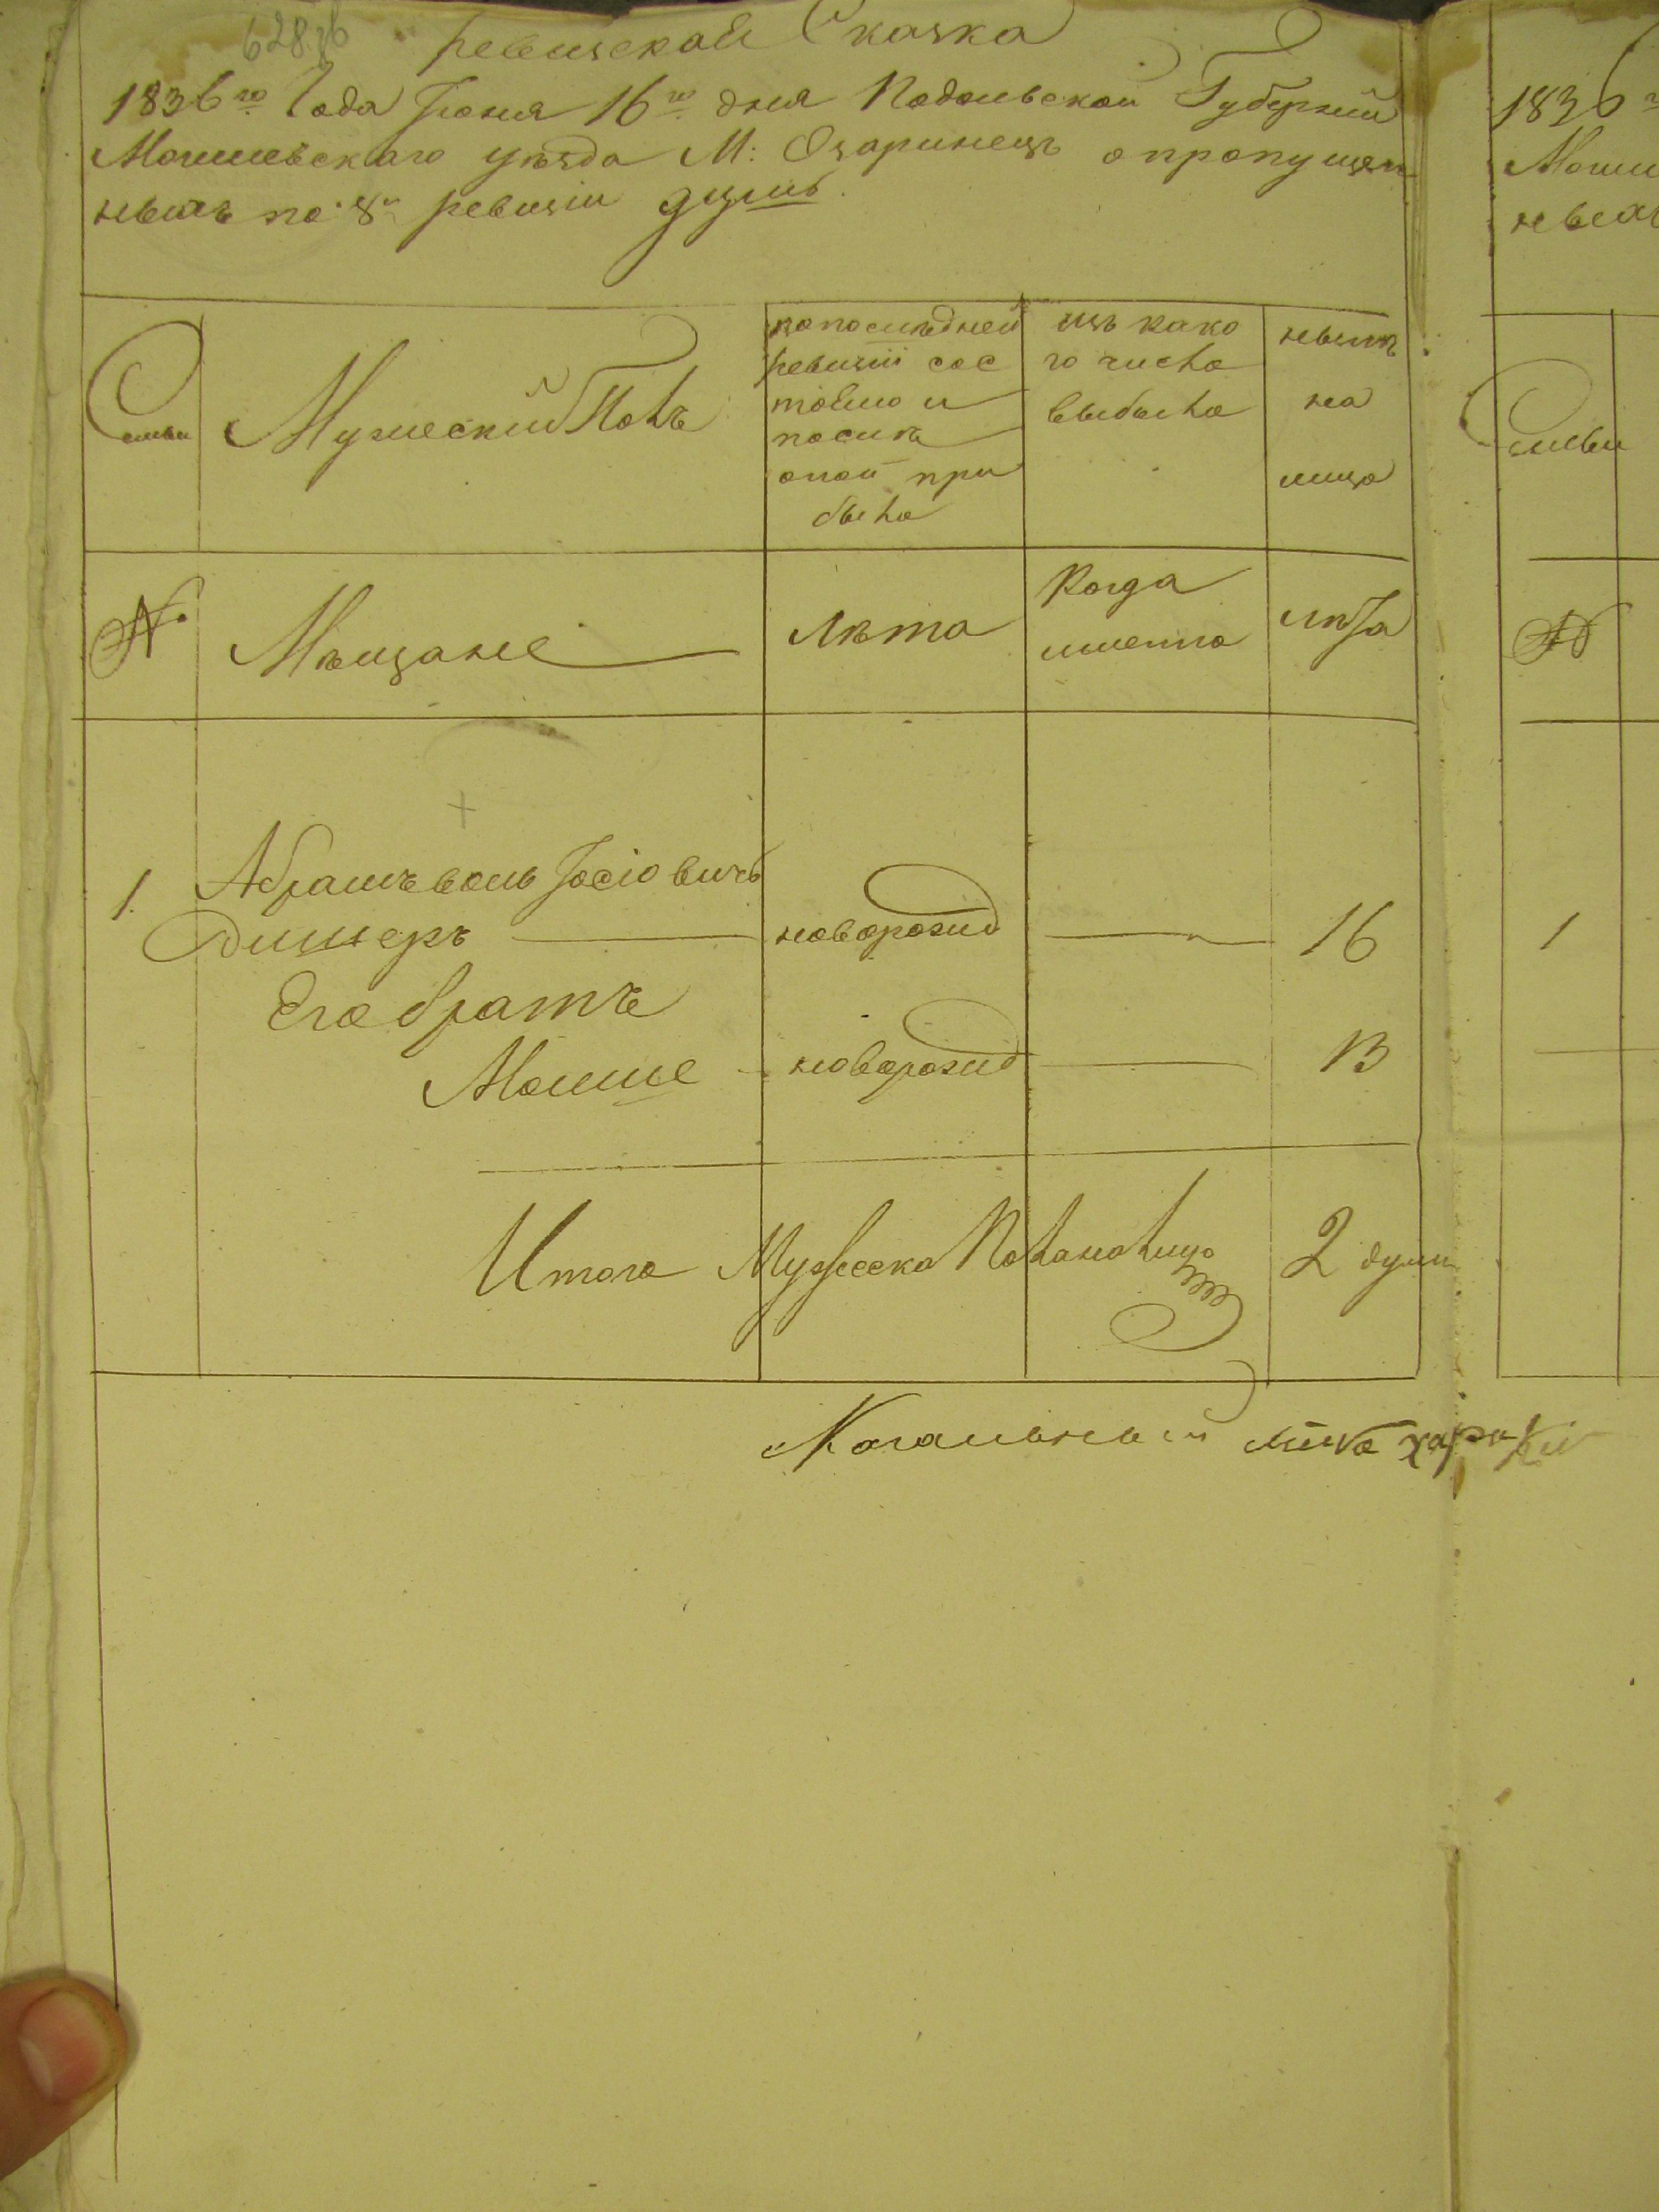 628 об
ревизская Сказка
1836го Года Іюня 16го дня Подольской Губерніи
Могилевскаго уѣзда М: Озаринецъ о пропущен
ныхъ по 8й ревизіи душъ.
Семьи
Мужескій Полъ
по послѣдней
ревизіи сос
тояло и
послѣ
оной при
было
изъ како
го числа
выбыло
нынѣ
на
лицо
№
Мѣщане
Лѣта
Когда
именно
лѣта
1. Абрамъ волъ Іосіовичъ
новорожд 16
Его братъ
Мошше новорожд 13
Итого Мужеска Пола на лицо 2 души
Кагальный
1836
Могил
ныхъ
Семьи
№
1